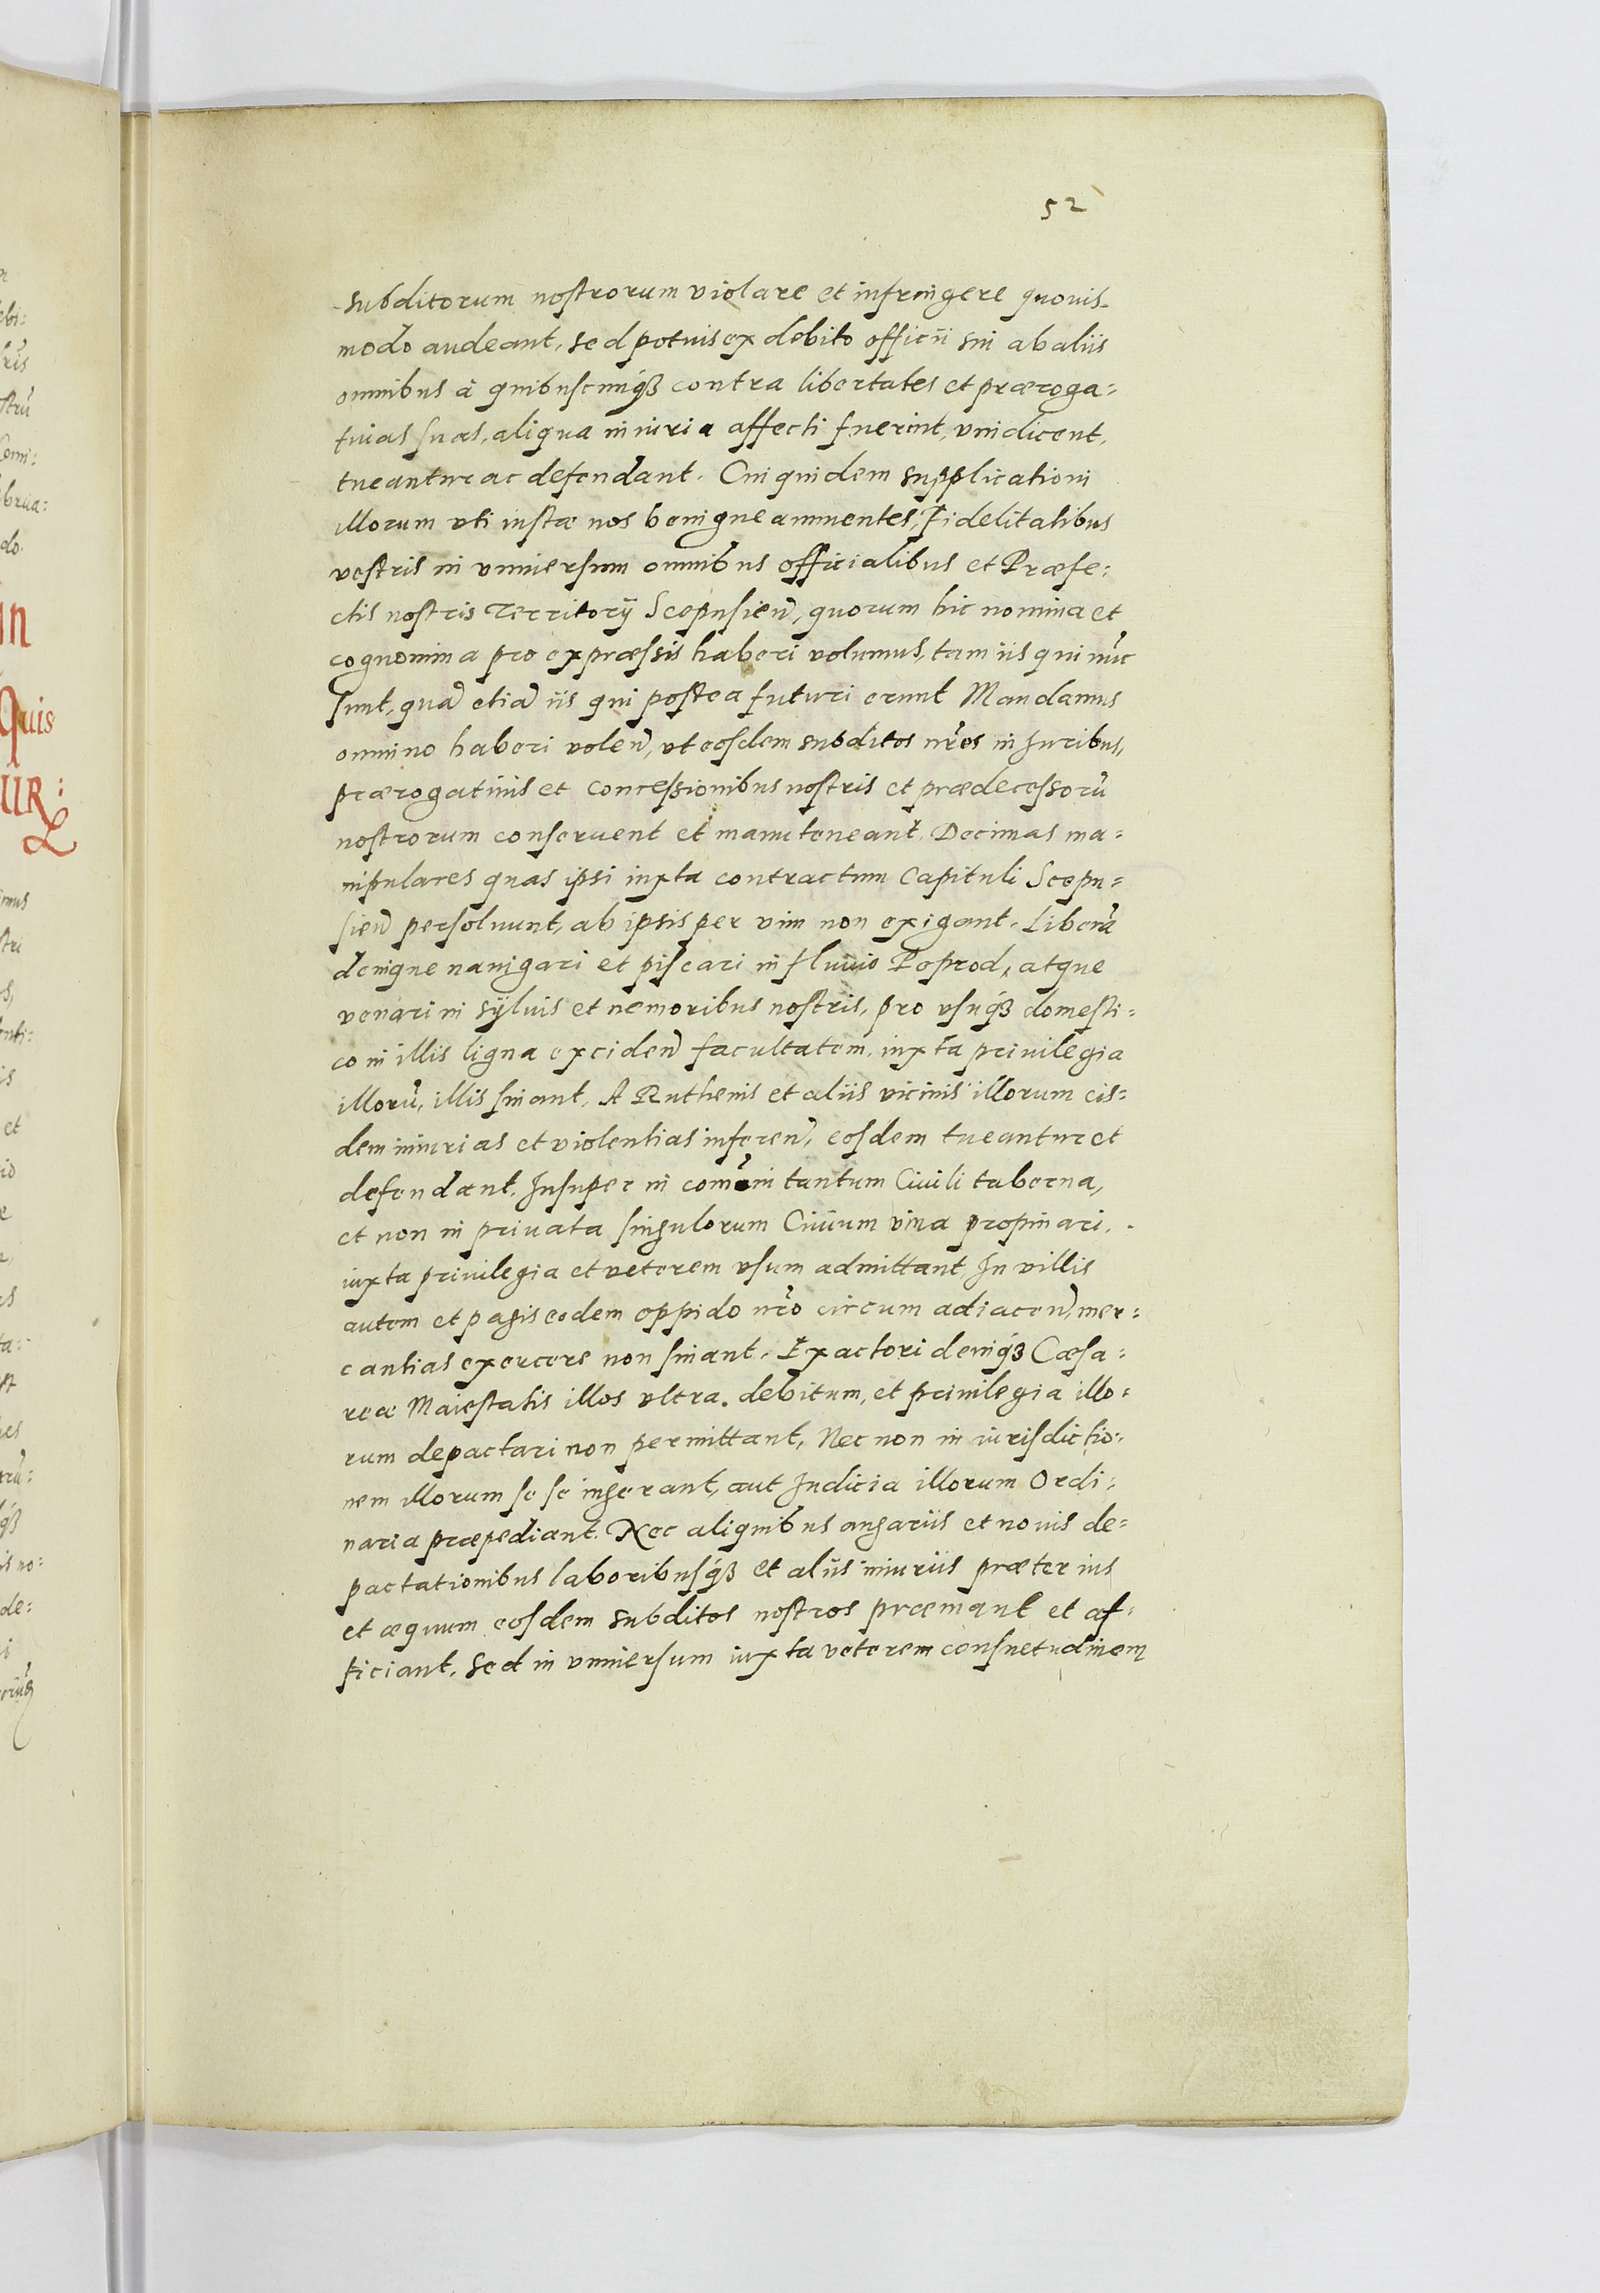 52
subditorum nostrorum violare et infringere quouis
modo audeant, sed potius ex debito officii sui ab aliis
omnibus à quibuscunq́ꝫ contra libertates et præroga:
tiuas suas, aliqua iniuria affecti fuerint, vindicent,
tueantur ac defendant. Cui quidem supplicationi
illorum uti iustæ nos benigne annuentes, Fidelitatibus
vestris in vniuersum omnibus officialibus et Præfe:
ctis nostris Territorÿ Scepusieñ, quorum hic nomina et
cognomina pro expræssis haberi volumus, tam iis qui nũc
sunt, quã etiã iis qui postea futuri erunt Mandamus
omnino haberi voleñ, vt eosdem subditos nr̃os in Juribus,
prærogatiuis et concessionibus nostris et prædecessorũ
nostrorum conseruent et manuteneant. Decimas ma:
nipulares quas ipsi iuxta contractum Capituli Scepu:
sieñ persoluunt, ab ipsis per vim non exigant. Liberã
denique nauigari et piscari in fluuio Poprod, atque
venari in sÿluis et nemoribus nostris, pro vsuq́ꝫ domesti:
co in illis ligna excidenñ facultatem, iuxta priuilegia
illorũ, illis sinant. A Ruthenis et aliis vicinis illorum eis:
dem iniurias et violentias infereñ, eosdem tueantur et
defendant. Insuper in com̃uni tantum Ciuili taberna,
et non in priuata singulorum Ciuium vina propinari,
iuxta priuilegia et veterem vsum admittant. In villis
autem et pagis eodem oppido nr̃o circum adiaceñ, mer:
cantias exercere non sinant. Exactori deniq́ꝫ Cæsa:
reæ Maiestatis illos vltra debitum, et priuilegia illo:
rum depactari non permittant, Nec non in iurisdictio:
nem illorum se se ingerant, aut Judicia illorum Ordi:
naria præpediant. Nec aliquibus angariis et nouis de:
pactationibus laboribusq́ꝫ et aliis iniuriis præter ius
et æquum eosdem subditos nostros præmant et af:
ficiant, sed in vniuersum iuxta veterem consuetudinem